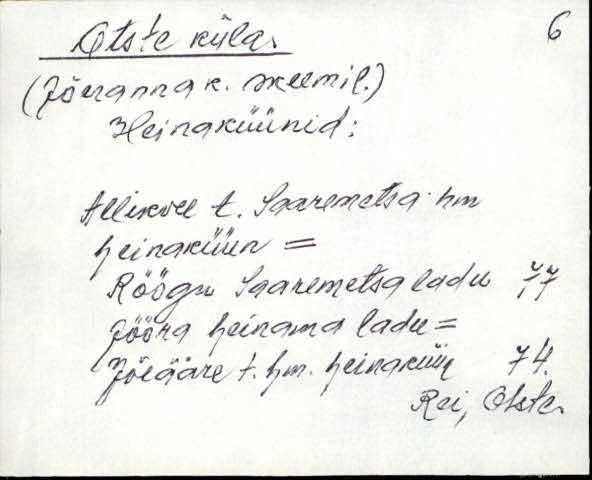 6
Otste küla.
(Jõeranna k. skeemil.)
Heinaküünid:
Allikvee t. Saaremetsa hm
heinaküün =
Röögu Saaremetsa ladu 77
Jööra heinama ladu =
Jõeääre t. hm. heinaküün 74.
Rei, Otste.